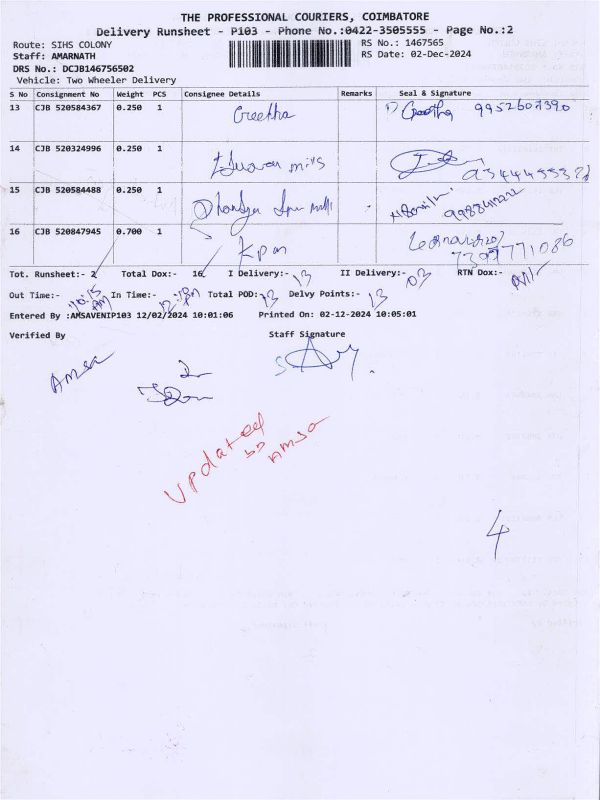 THE PROFESSIONAL COURIERS, COIMBATORE
Delivery Runsheet - P103 - Phone No.:0422-3505555 - Page No.:2
Route: SIHS COLONY RS No.: 1467565
Staff: AMARNATH RS Date: 02-Dec-2024
DRS No.: DCJB146756502
Vehicle: Two Wheeler Delivery
S No Consignment No Weight PCS Consignee Details Remarks Seal & Signature
13 CJB 520584367 0.250 1 Geetha Geetha 9952607390
14 CJB 520324996 0.250 1 mills
15 CJB 520584488 0.250 1
16 CJB 520847945 0.700 1 Kpm 7397771086
Tot. Runsheet:- 2 Total Dox:- 16 I Delivery:- 13 II Delivery:- 03 RTN Dox:- Nil
Out Time:- 10:15 AM In Time:- Total POD: 13 Delvy Points:- 13
Entered By :AMSAVENIP103 12/02/2024 10:01:06 Printed On: 02-12-2024 10:05:01
Verified By Staff Signature
Amsa
Updated
by
Amsa
4